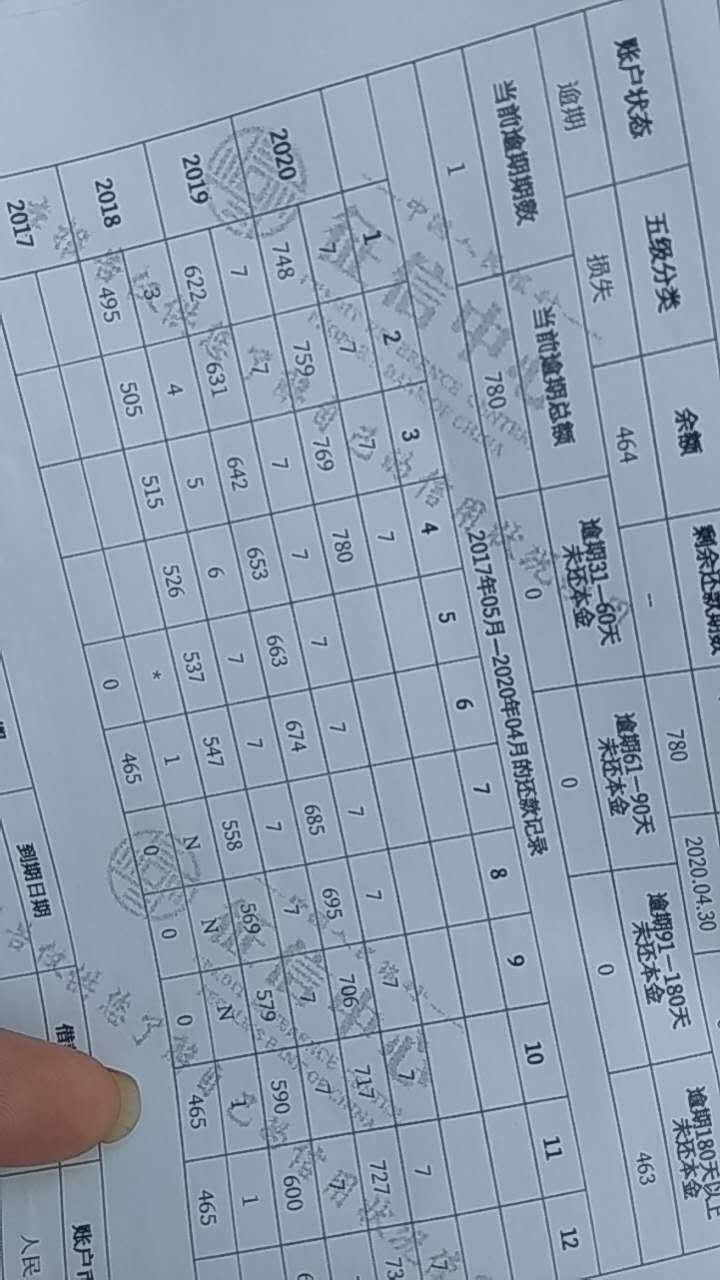 账户状态 五级分类 余额 剩余还款期数
逾期 损失 464 -- 780 2020.04.30
当前逾期期数 当前逾期总额 逾期31—60天 逾期61—90天 逾期91—180天 逾期180天以上
未还本金 未还本金 未还本金 未还本金
1 780 0 0 0 463
2017年05月—2020年04月的还款记录
1 2 3 4 5 6 7 8 9 10 11 12
2020 7 7 7 7
748 759 769 780
2019 7 7 7 7 7 7 7 7 7 7 7 7
622 631 642 653 663 674 685 695 706 717 727
2018 3 4 5 6 7 7 7 7 7 7 7
495 505 515 526 537 547 558 569 579 590 600
2017 * 1 N N N 1 1
0 465 0 0 0 465 465
到期日期 借 账户币
人民
征信中心
征信中心